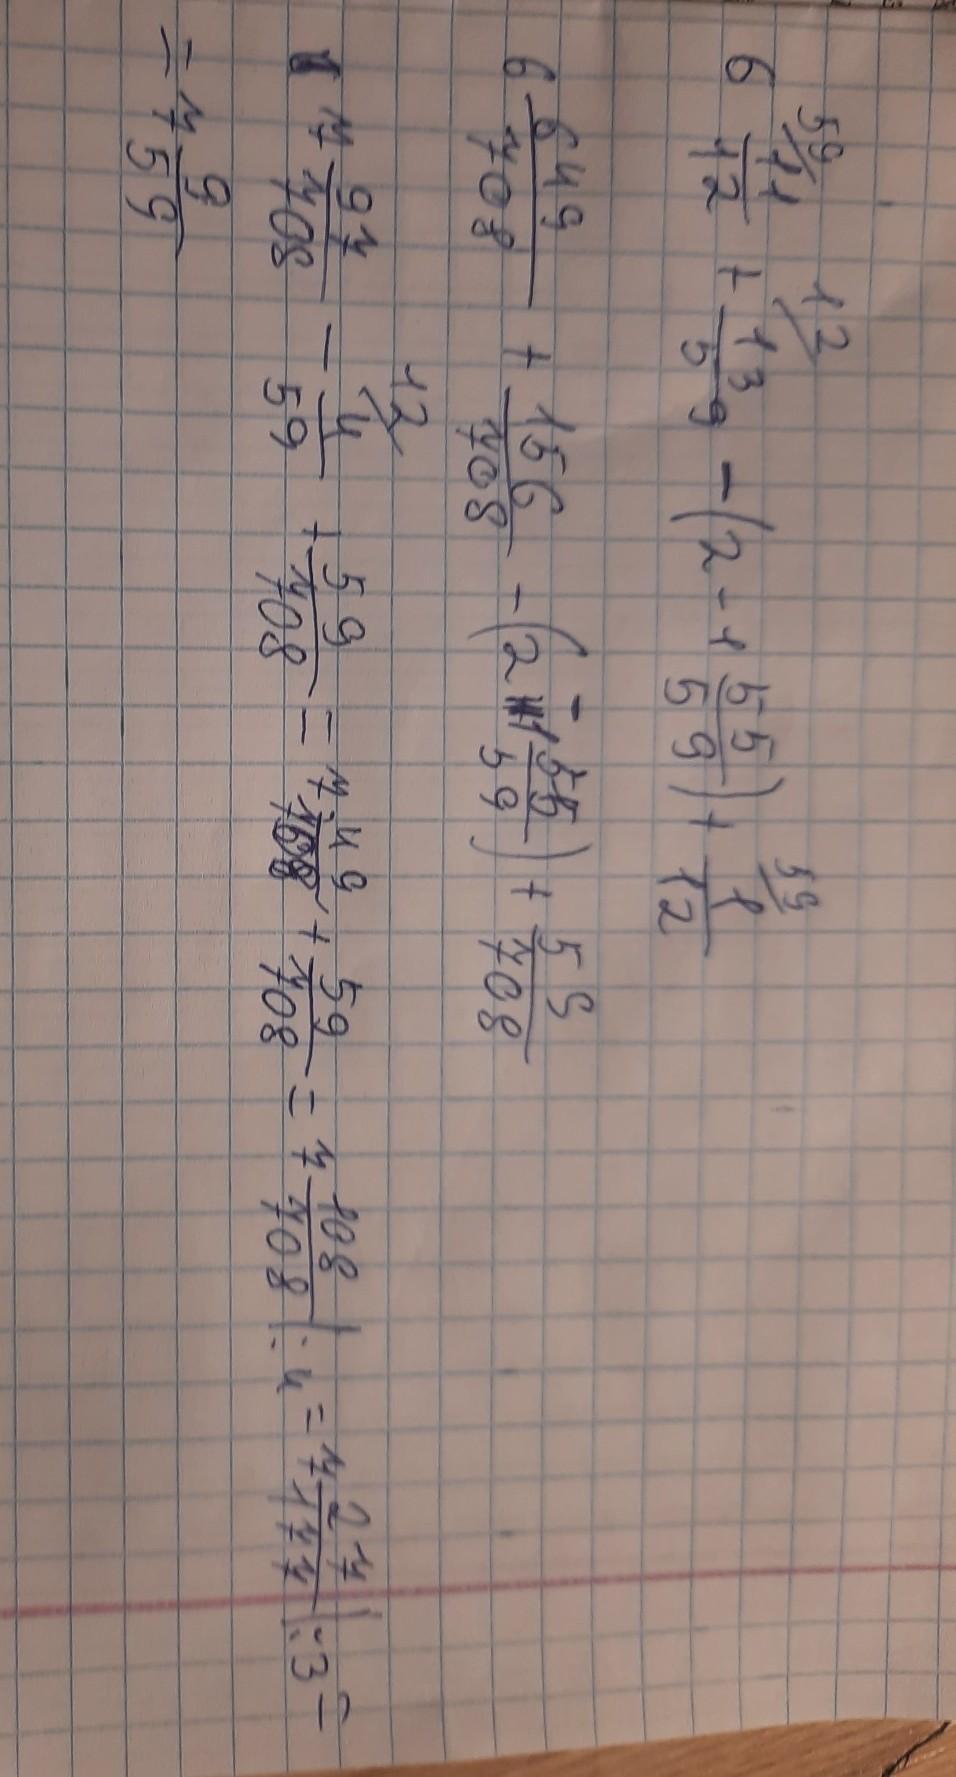 6 11/12 + 13/59 - (2 - 1 55/59) + 1/12
6 649/708 + 156/708 - (2 - 1 55/59) + 59/708
7 97/708 - 4/59 + 59/708 = 7 49/708 + 59/708 = 7 108/708 | : 4 = 7 27/177 | : 3 =
= 7 9/59